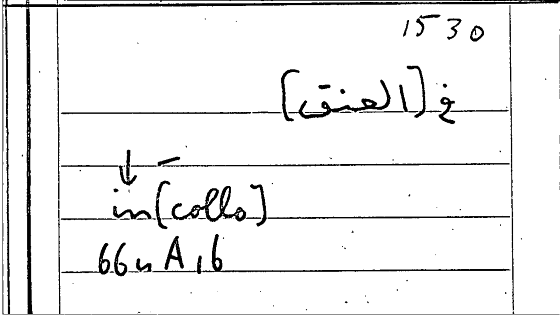 1530
في [العنق]
in [collo]
66u A, 6